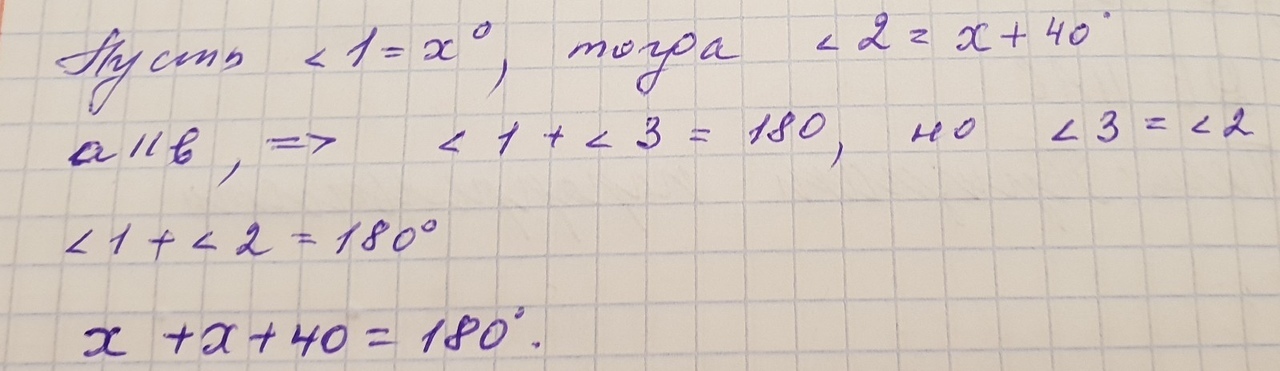 Пусть < 1 = x°, тогда < 2 = x + 40°
a || b, => < 1 + < 3 = 180, но < 3 = < 2
< 1 + < 2 = 180°
x + x + 40 = 180°.